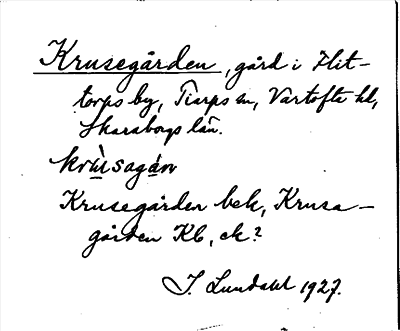 Krusegården, gård i Flit-
torps by, Tiarps sn, Vartofta hd,
Skaraborgs län.
krùsagán
Krusegården bek, Krusa-
gården Kb, ek?
J. Lundahl 1927.